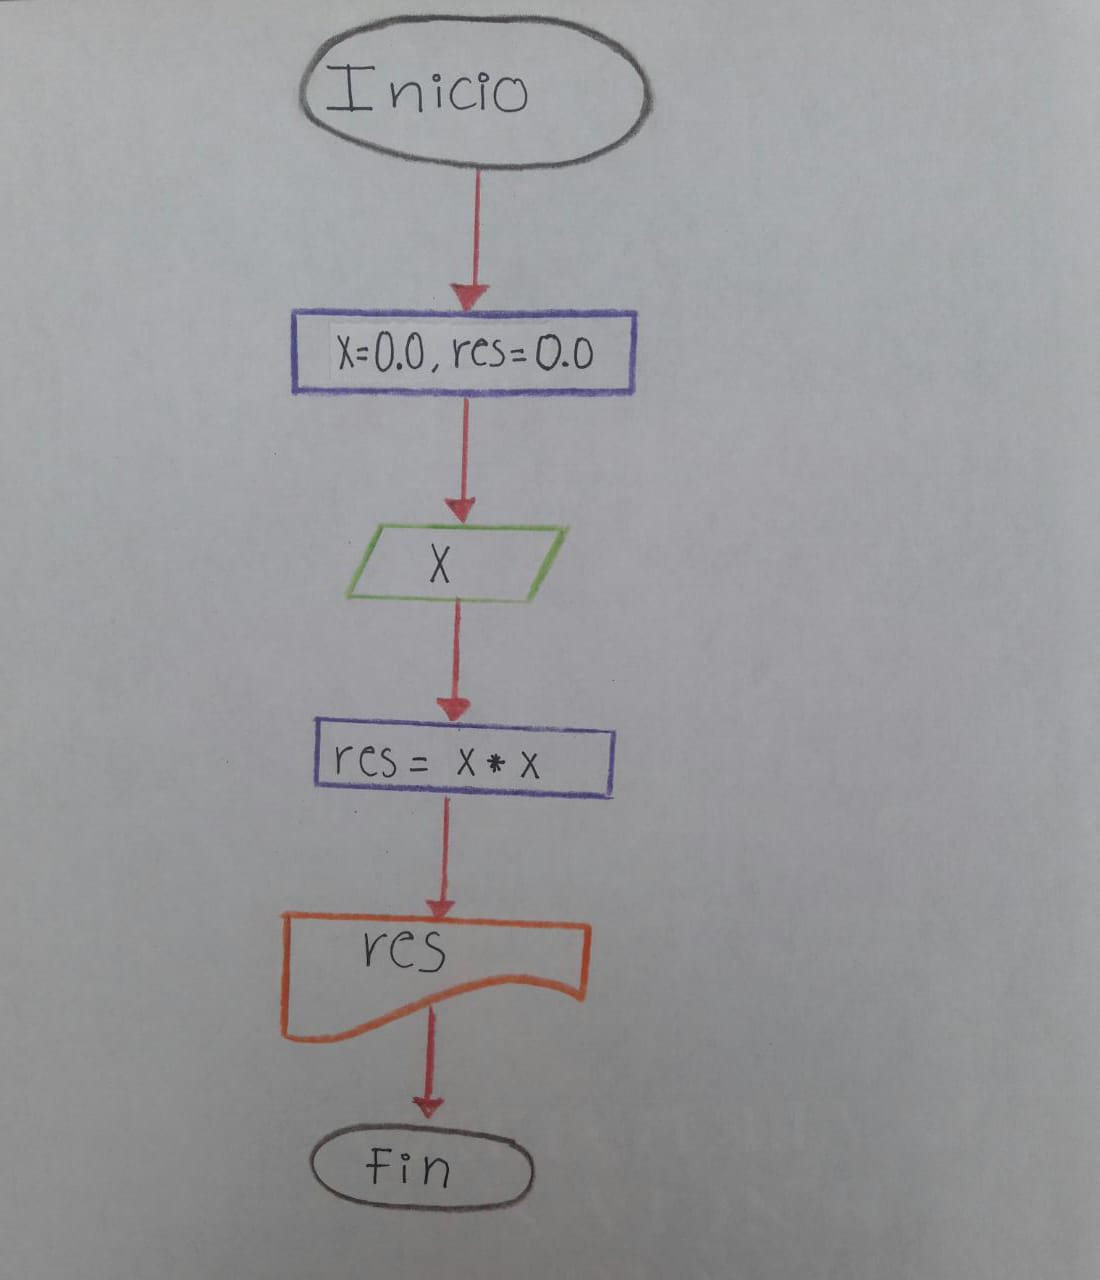 Inicio
X=0.0, res=0.0
X
res= x*x
res
Fin